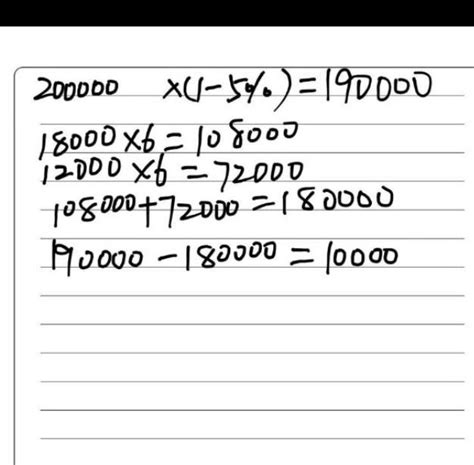 200000 ×(1-5%)=190000
18000×6=108000
12000×6=72000
108000+72000=180000
190000-180000=10000